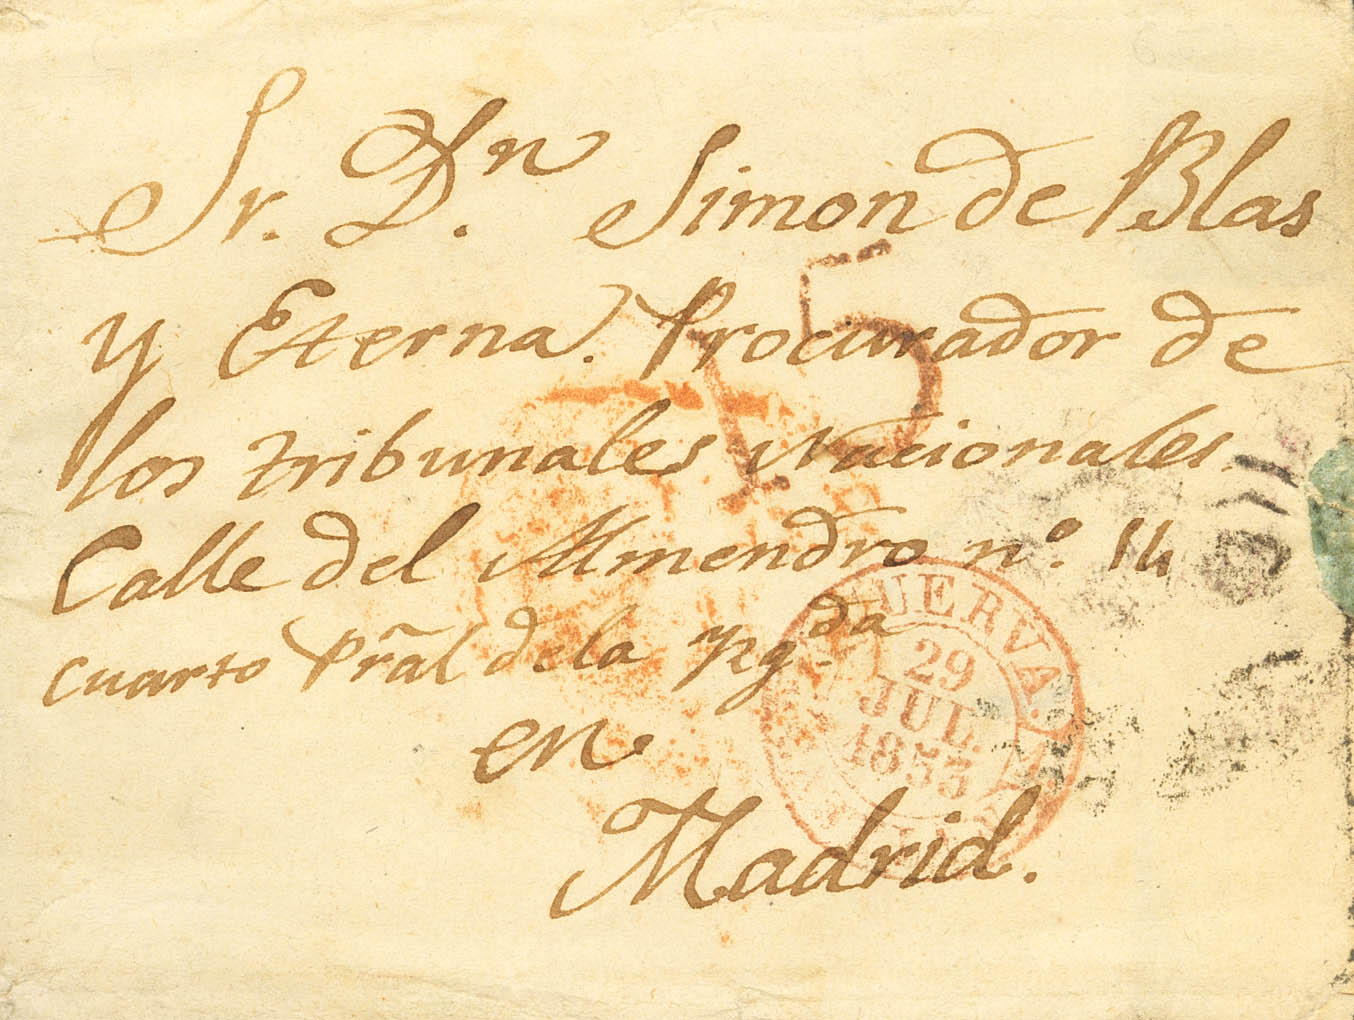 Sr. Dn. Simon de Blas
y Eterna. Procurador de
los tribunales Nacionales.
Calle del Almendro nº. 14
cuarto Pñal de la yzg.da
en
Madrid.
15
HUERVA.
29
JUL.
1853